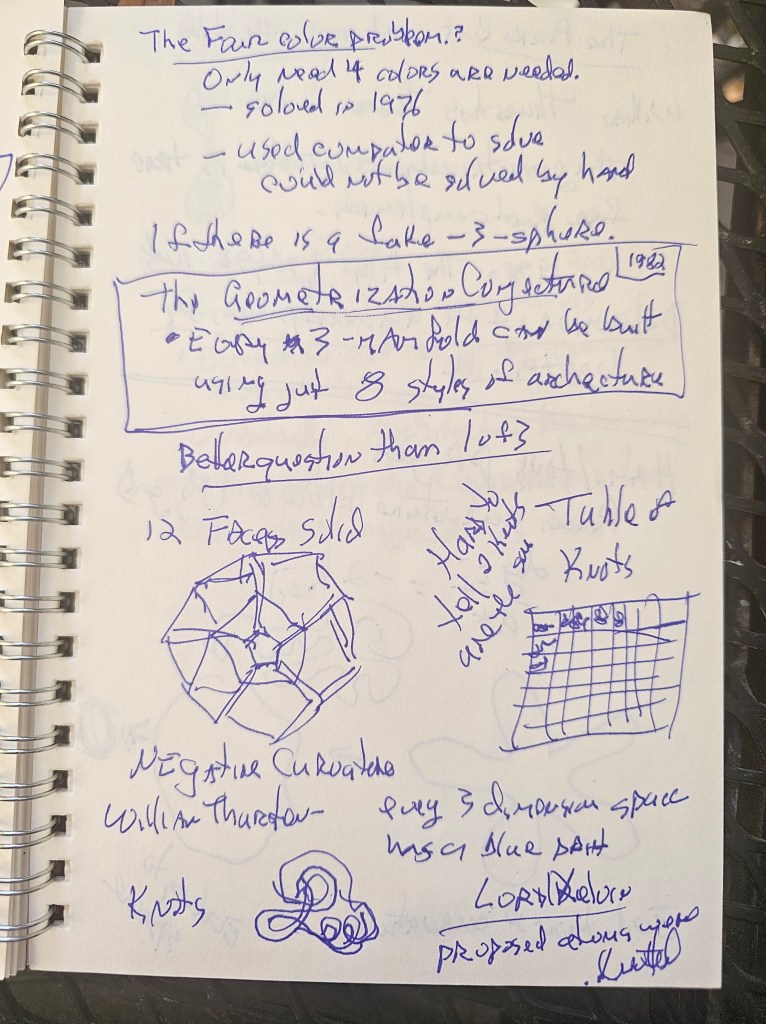 The Four color problem.?
Only need 4 colors are needed.
— solved in 1976
— used computer to solve
could not be solved by hand
If there is a fake -3-sphere.
1982
The Geometrization Conjecture
• Every 3-manifold can be built
using just 8 styles of architecture
Better question than 1 of 3
12 Faces Solid
Hard to
tell 2 knots
are the same
Table of
Knots
Negative Curvature
William Thurston-
every 3 dimension space
has a blue part
Knots
Lord Kelvin
proposed atoms were
knotted